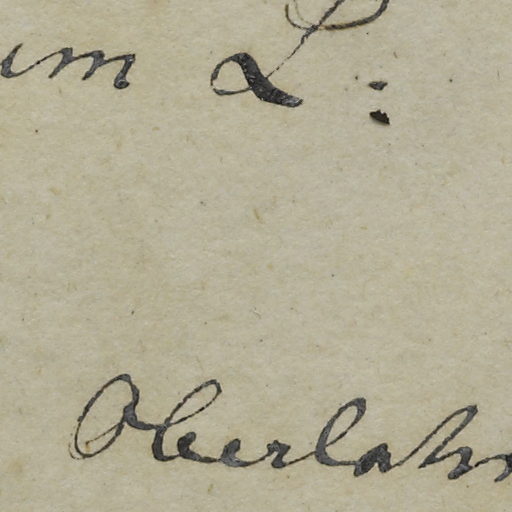 um L:
Oberlahn